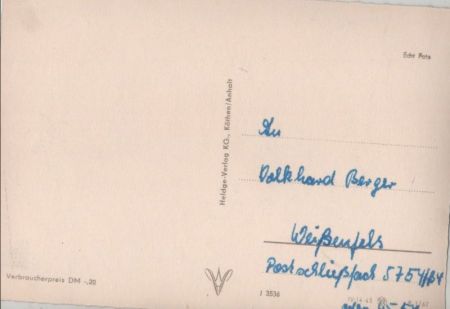 Echt Foto
Heldge-Verlag KG., Köthen/Anhalt
An
Volkhard Berger
Weißenfels
Postschließfach 5754/B4
Verbraucherpreis DM -,20
I 3536